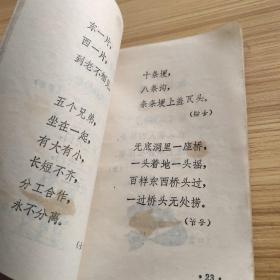 东一片,
西一片,
到老不
五个兄弟,
坐在一起,
有大有小,
长短不齐,
分工合作,
永不分离。
十条埂,
八条沟,
条条埂上盖瓦头。
无底洞里一座桥,
一头着地一头摇,
百样东西桥头过,
一过桥头无处捞。
· 23 ·